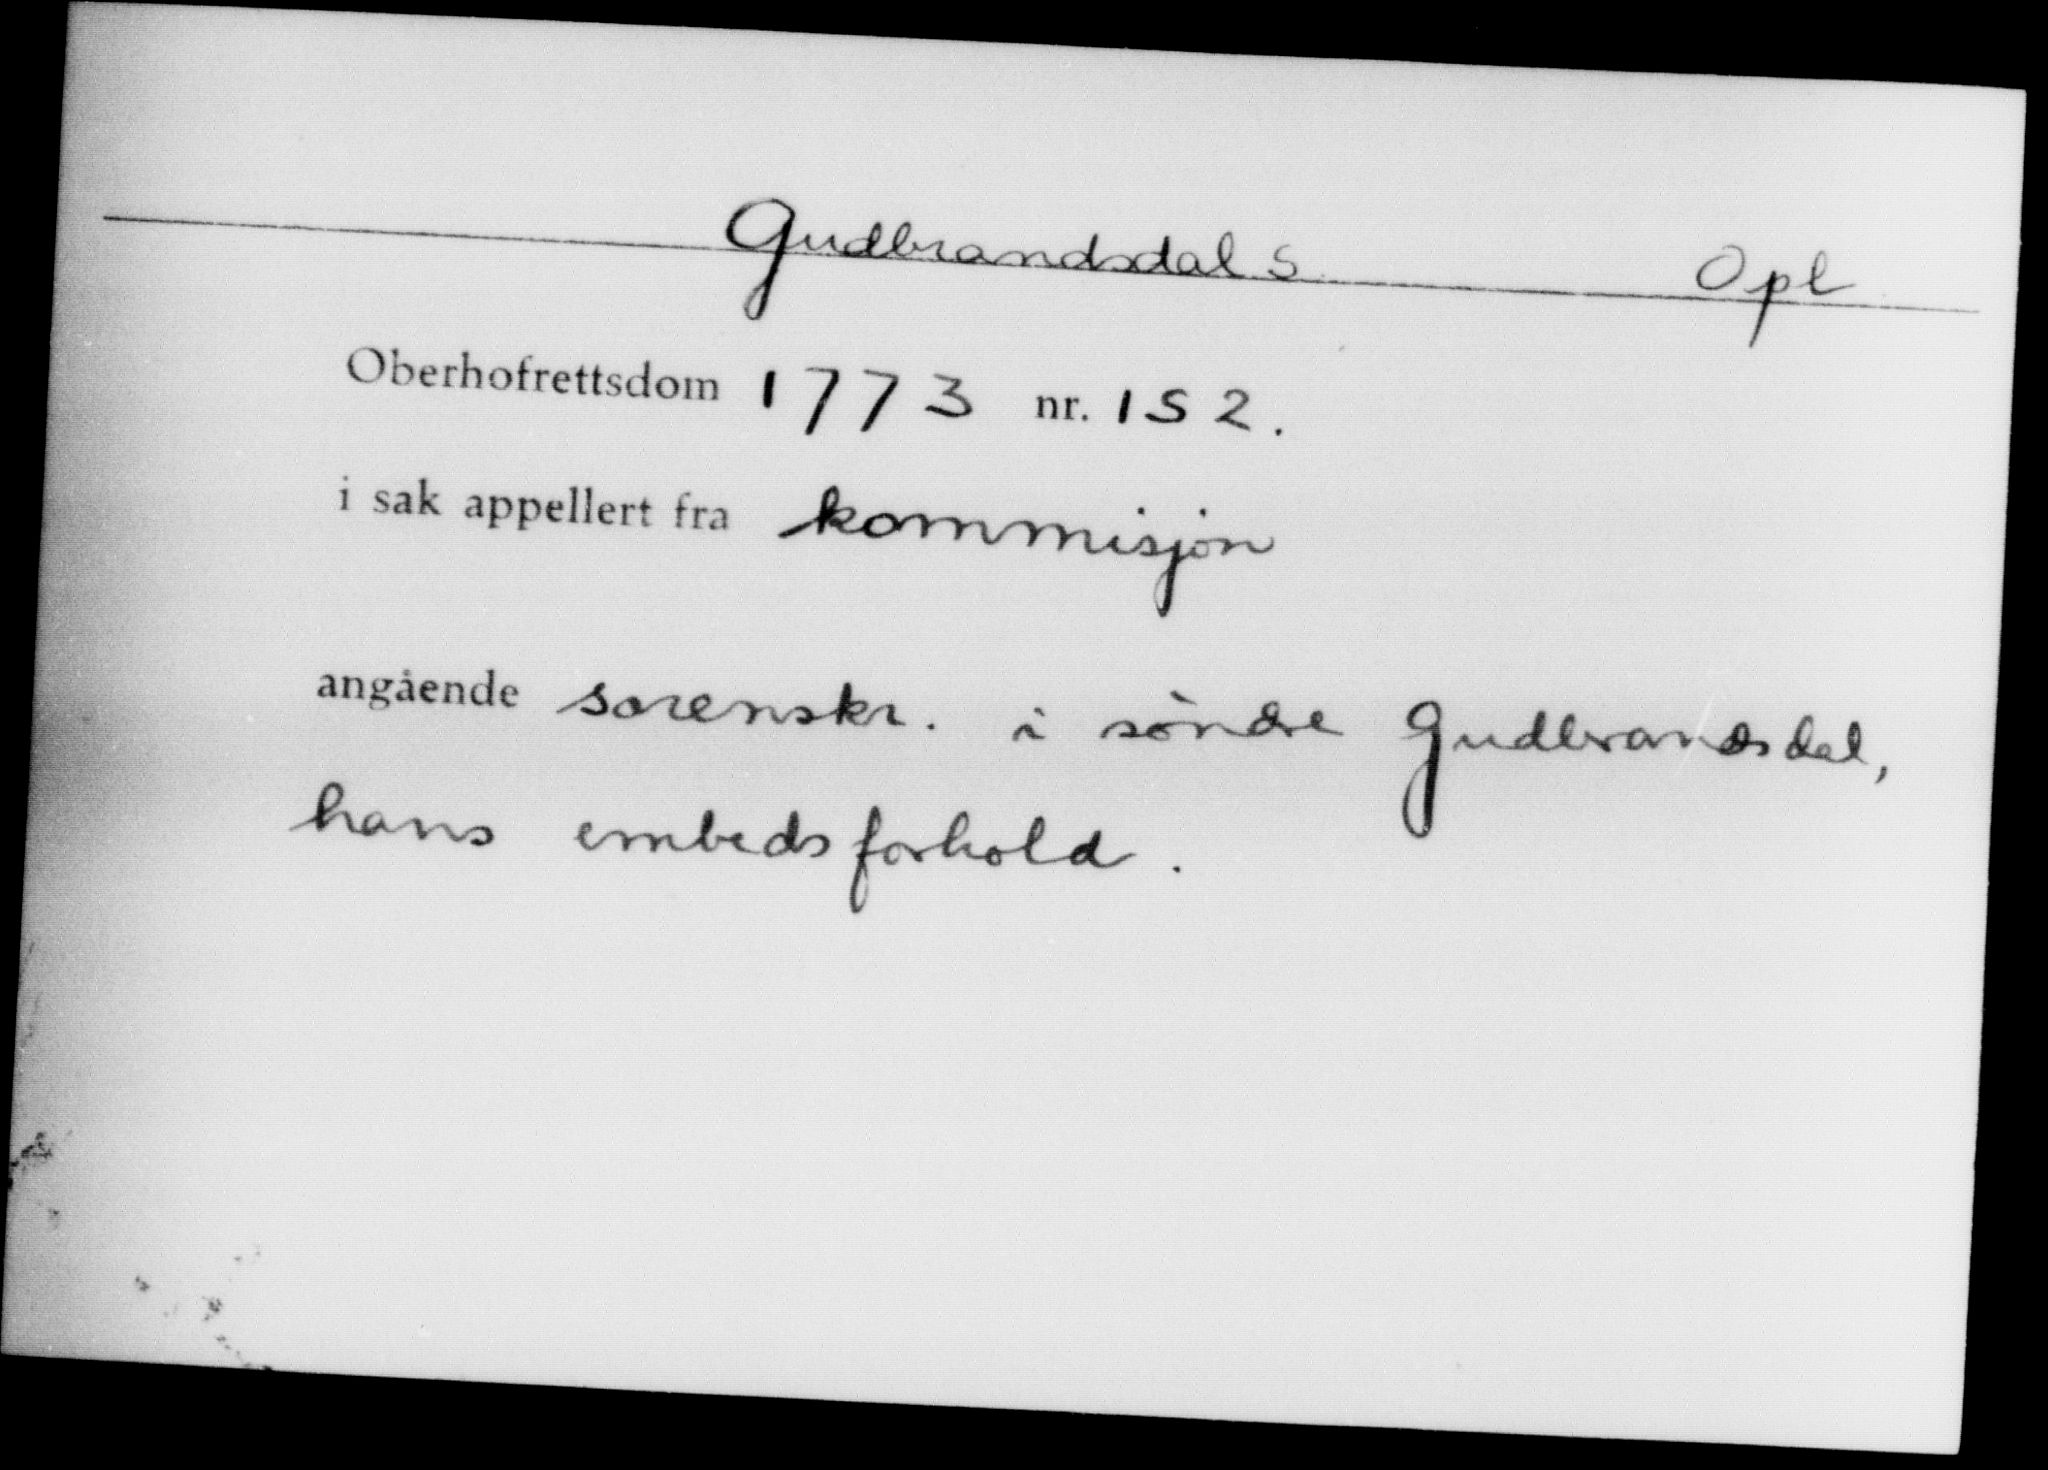 Gudbrandsdal S Opl
Oberhofrettsdom 1773 nr. 152.
i sak appellert fra kommisjon
angående sorenskr. i søndre Gudbrandsdal,
hans embedsforhold.